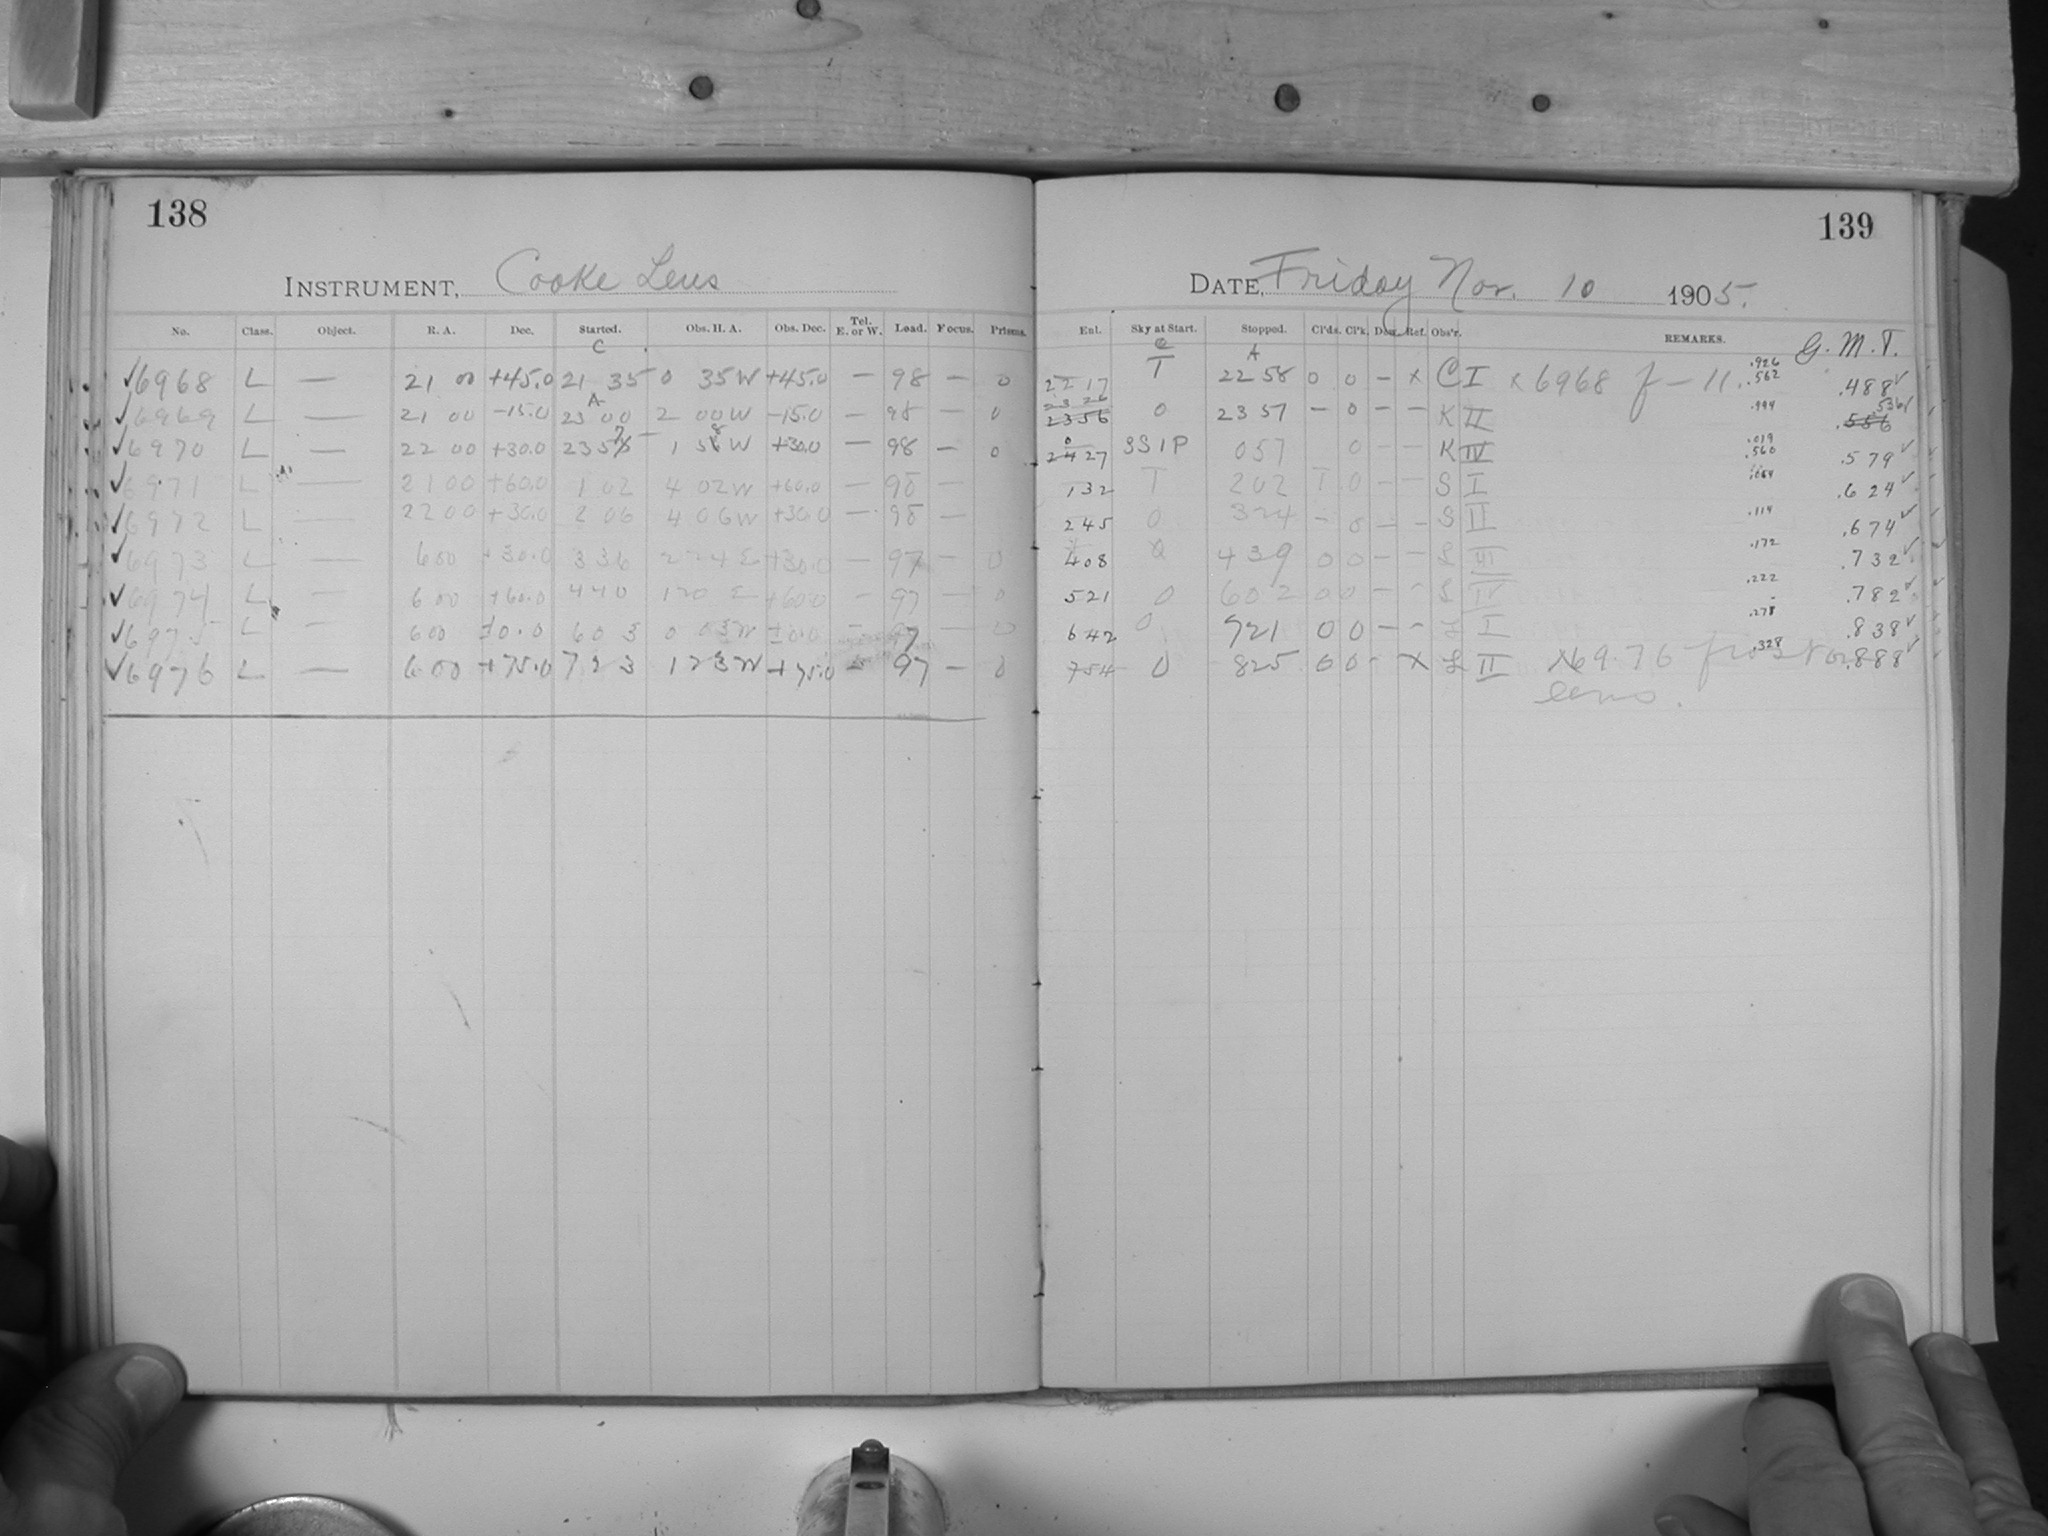 138
INSTRUMENT, Cooke Lens
No. Class. Object. R. A. Dec. Started. Obs. H. A. Obs. Dec. Tel. E. or W. Load. Focus. Prisms.
C
6968 L — 21 00 +45.0 21 35 0 35W +45.0 — 98 — 0
A
6969 L — 21 00 -15.0 23 00 2 00W -15.0 — 98 — 0
6970 L — 22 00 +30.0 23 58 1 58W +30.0 — 98 — 0
6971 L — 21 00 +60.0 1 02 4 02W +60.0 — 98 —
6972 L — 22 00 +30.0 2 06 4 06W +30.0 — 98 —
6973 L — 6 00 +30.0 3 36 2 24E +30.0 — 97 — 0
6974 L — 6 00 +60.0 4 40 1 20 E +60.0 — 97 — 0
6975 L — 6 00 ±0.0 6 03 0 03W ±0.0 — 97 — 0
6976 L — 6 00 +75.0 7 23 1 23W +75.0 — 97 — 0
139
DATE, Friday Nov. 10 1905.
Enl. Sky at Start. Stopped. Cl'ds. Cl'k. Dew. Ref. Obs'r. REMARKS. G. M. T.
22 17 T A 22 58 0 0 – x C I x 6968 f – 11. .926 .562 .488
23 26 2356 0 23 57 – 0 – – K II .994 .536 .556
0 24 27 SS1P 0 57 0 – – K IV .019 .560 .579
1 32 T 2 02 T 0 – – S I .064 .624
2 45 0 3 24 – 0 – – S II .114 .674
4 08 0 4 39 0 0 – – L III .172 .732
5 21 0 6 02 0 0 – – L IV .222 .782
6 42 0 7 21 0 0 – – L I .278 .838
7 54 0 8 25 0 0 – X L II X6976 frost on .328 .888
lens.